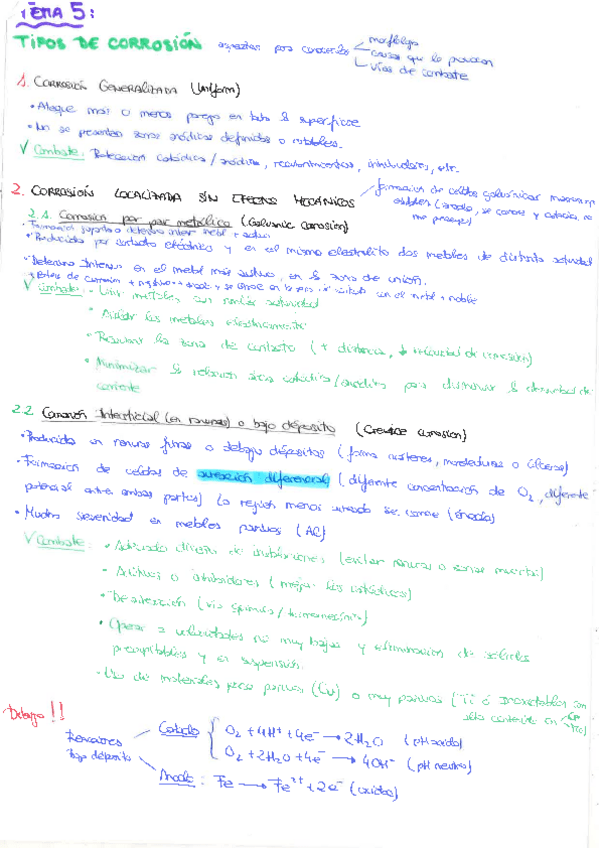 TEMA 5:
TIPOS DE CORROSIÓN aspectos para conocerlos morfología
causas que lo provocan
vías de combate
1. CORROSIÓN GENERALIZADA (Uniform)
• Ataque más o menos parejo en toda la superficie
• No se presentan zonas anódicas definidas o estables.
√ Combate: Protección catódica/anódica, recubrimientos, inhibidores, etc.
2. CORROSIÓN LOCALIZADA SIN EFECTOS MECÁNICOS
formación de celdas galvánicas
estables (ánodo, se corroe y cátodo, no
se protege)
2.1. Corrosión por par metálico (Galvanic corrosion)
• Producida por contacto eléctrico y en el mismo electrolito dos metales de distinta actividad
• Deterioro Intenso en el metal más activo, en la zona de unión.
√ Combate: - Unir metales con similar actividad
• Aislar los metales eléctricamente
• la zona de contacto (+ distancia, ↓ velocidad de corrosión)
• Minimizar la relación área catódica/anódica para disminuir la densidad de
corriente
2.2 Corrosión Intersticial (en ranuras) o bajo depósito (Crevice corrosion)
• Producida en ranuras finas o debajo depósitos (forma cráteres, o úlceras)
• Formación de celdas de aireación diferencial (diferente concentración de O₂, diferente
potencial entre ambas partes) la región menos aireada se corroe (ánodo)
• Mucha severidad en metales pasivos (AC)
√ Combate: • Adecuado diseño de instalaciones (evitar ranuras o zonas muertas)
- Aditivos o inhibidores (mejor los catódicos)
• Desaireación (vía química/termomecánica)
• Operar a velocidades no muy bajas y eliminación de sólidos
precipitables y en suspensión.
- Uso de materiales poco pasivos (Cu) o muy pasivos (Ti ó Inoxidables con
alto contenido en
Debajo!!
Reacciones
Bajo depósito
Cátodo { O₂ + 4H⁺ + 4e⁻ → 2H₂O (pH ácido)
O₂ + 2H₂O + 4e⁻ → 4OH⁻ (pH neutro)
Ánodo: Fe → Fe²⁺ + 2e⁻ (oxidac)